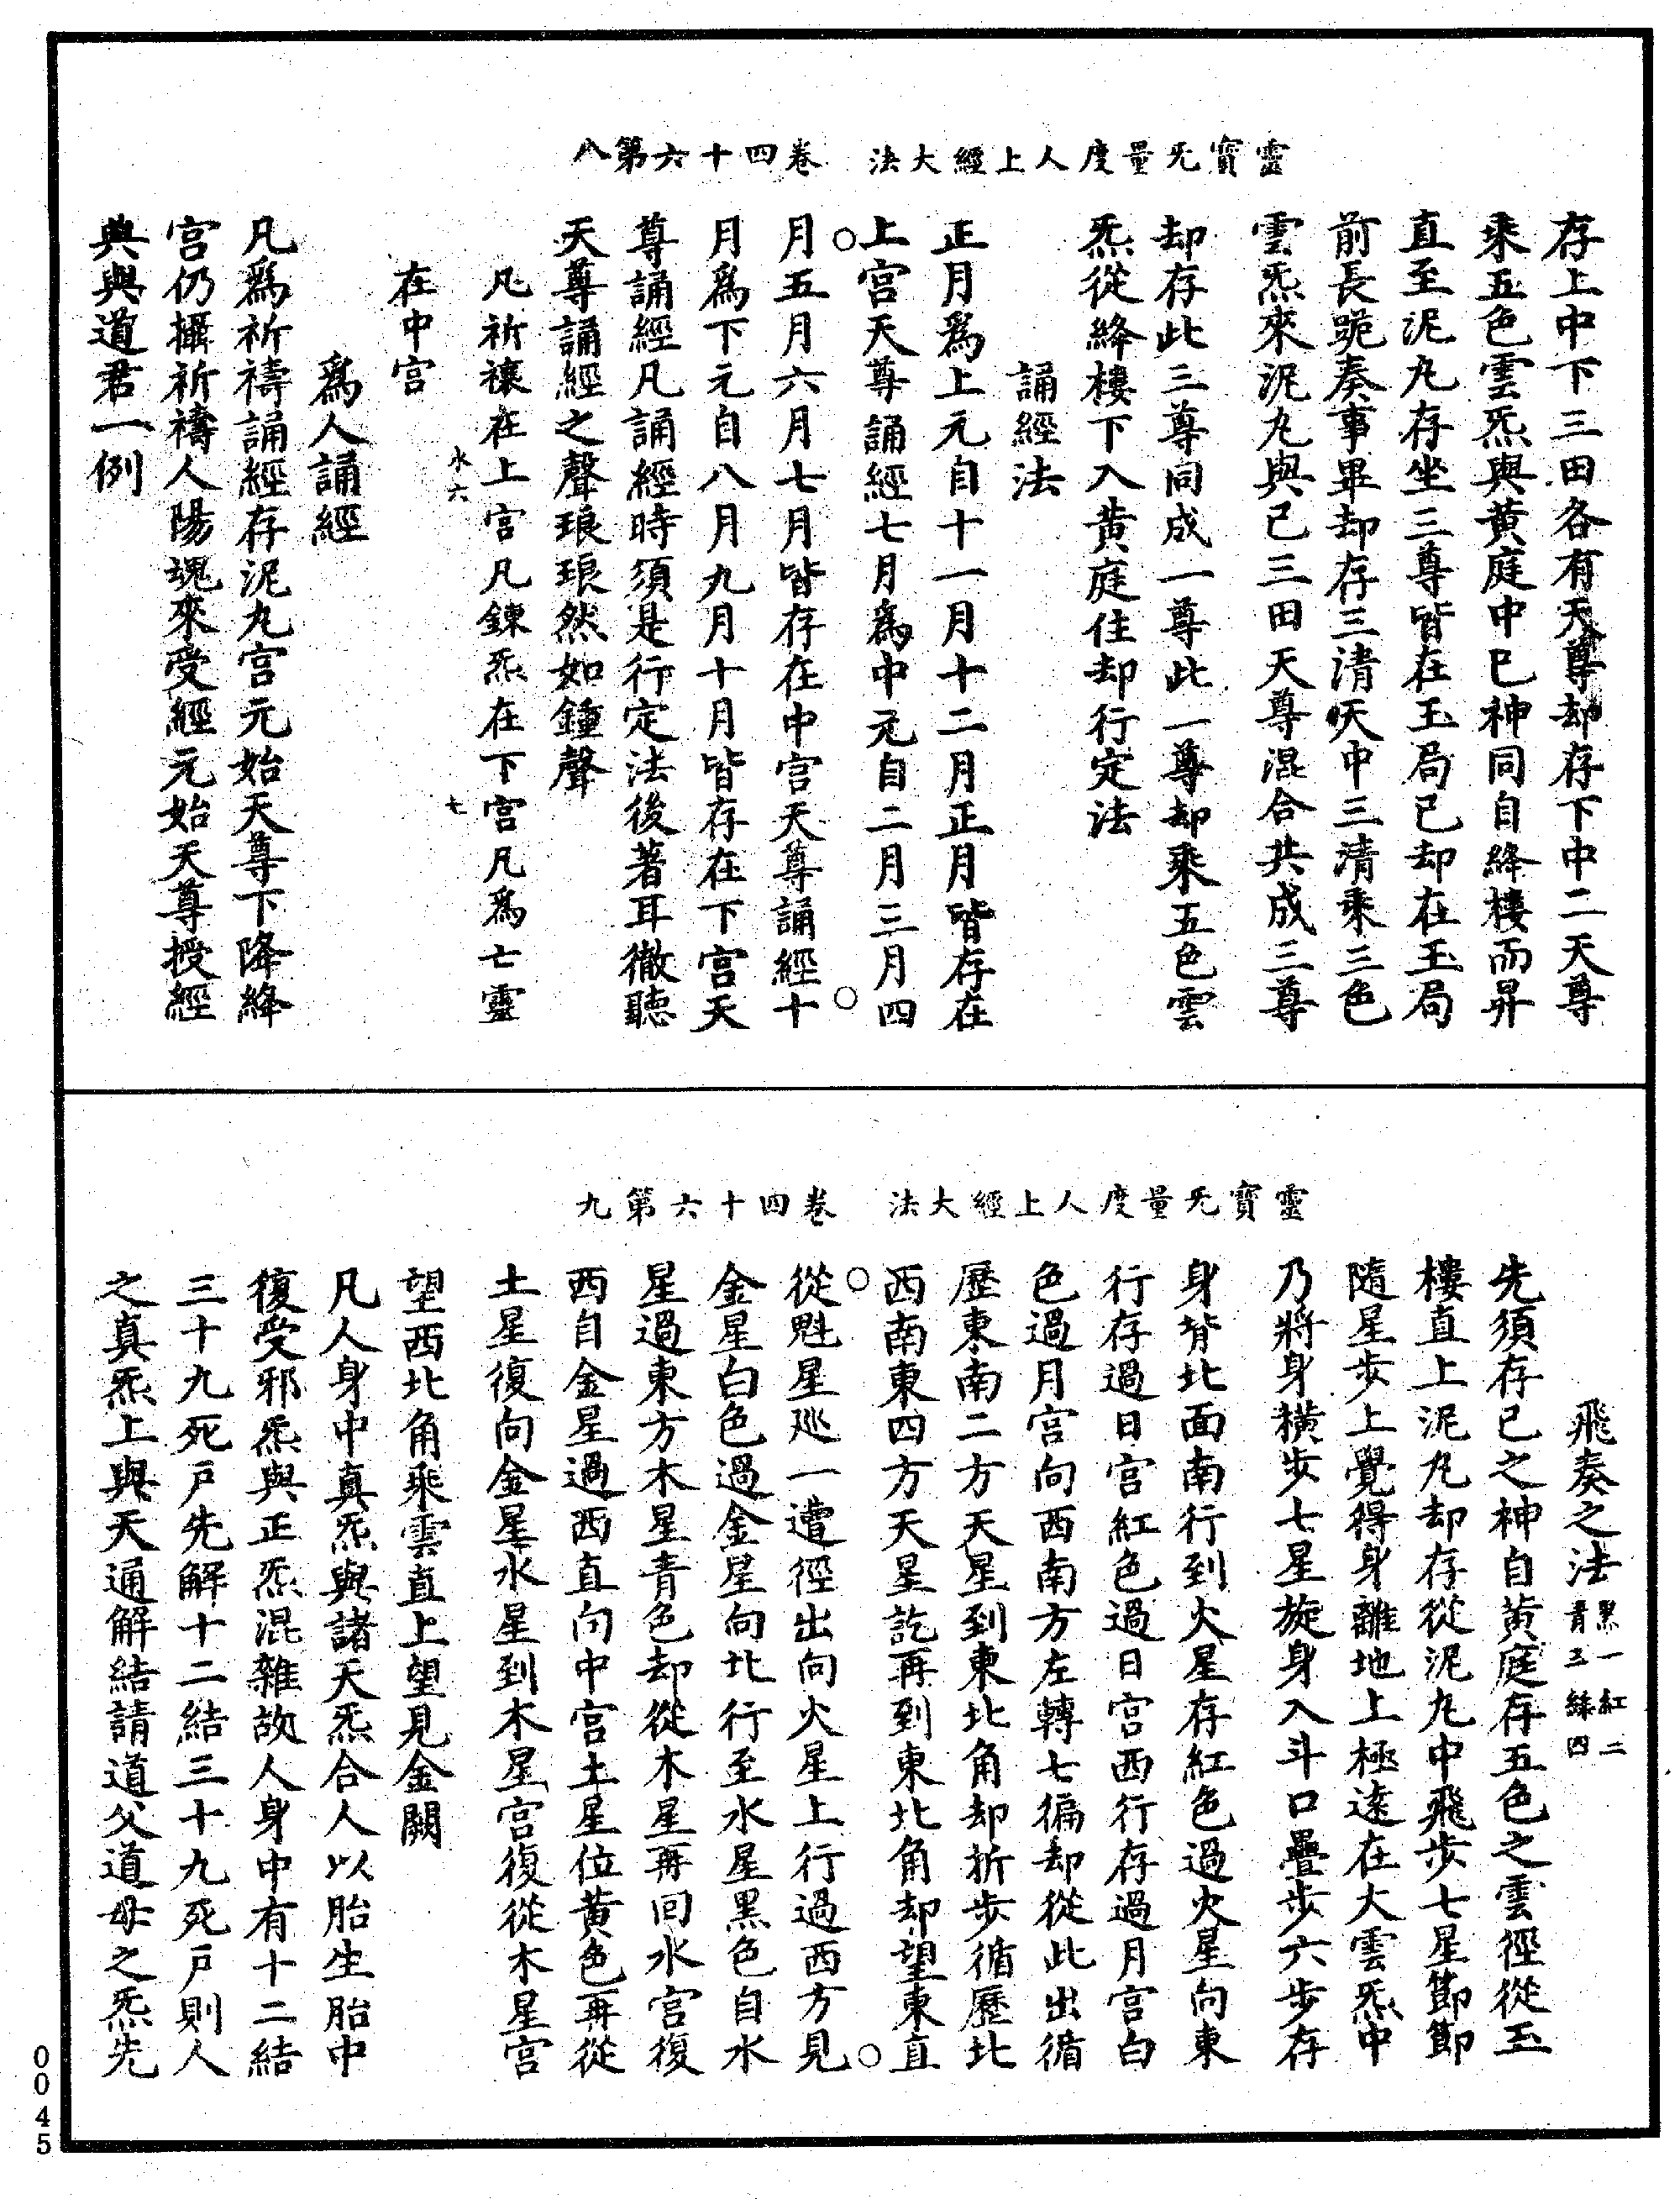 靈寶无量度人上經大法　卷四十六第八
存上中下三田各有天尊却存下中二天尊
乘五色雲炁與黄庭中已神同自絳樓而昇
直至泥丸存坐三尊皆在玉局已却在玉局
前長跪奏事畢却存三清天中三清乘三色
雲炁來泥丸與已三田天尊混合共成三尊
却存此三尊同成一尊此一尊却乘五色雲
炁從絳樓下入黄庭住却行定法
誦經法
正月爲上元自十一月十二月正月皆存在
上宫天尊誦經七月爲中元自二月三月四
月五月六月七月皆存在中宫天尊誦經十
月爲下元自八月九月十月皆存在下宫天
尊誦經凡誦經時須是行定法後著耳徹聽
天尊誦經之聲琅琅然如鍾聲
凡祈禳在上宫凡鍊炁在下宫凡爲七靈
水六　七
在中宫
爲人誦經
凡爲祈禱誦經存泥丸宫元始天尊下降絳
宫仍攝祈禱人陽魂來受經元始天尊授經
與與道君一例
靈寶无量度人上經大法　卷四十六第九
飛奏之法黑一紅二青三綠四
先須存已之神自黄庭存五色之雲徑從玉
樓直上泥丸却存從泥丸中飛步七星節節
隨星步上覺得身離地上極遠在大雲炁中
乃將身横步七星旋身入斗口疊步六步存
身背北面南行到火星存紅色過火星向東
行存過日宫紅色過日宫西行存過月宫白
色過月宫向西南方左轉七徧却從此出循
歷東南二方天星到東北角却折步循歷北
西南東四方天星訖再到東北角却望東直
從魁星廵一遭徑出向火星上行過西方見
金星白色過金星向北行至水星黑色自水
星過東方木星青色却從木星再回水宫復
西自金星過西直向中宫土星位黄色再從
土星復向金星水星到木星宫復從木星宫
望西北角乘雲直上望見金闕
凡人身中真炁與諸天炁合人以胎生胎中
復受邪炁與正炁混雜故人身中有十二結
三十九死户先解十二結三十九死户則人
之真炁上與天通解結請道父道母之炁先
0045